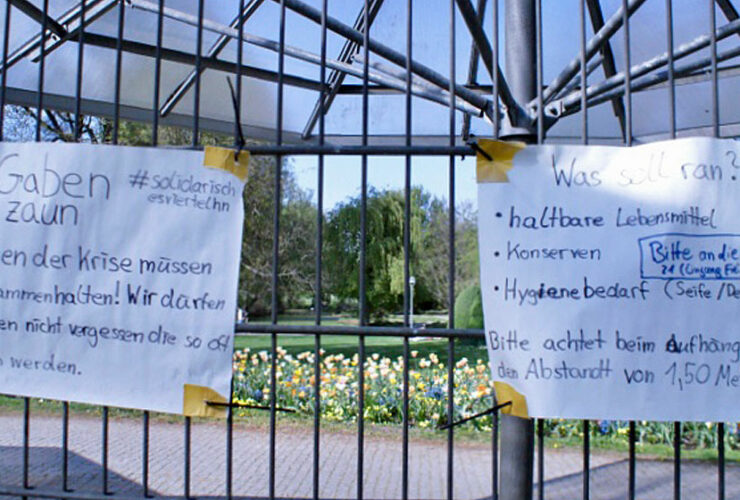 Gaben
zaun
#solidarisch
esviertelhn
en der Krise müssen
ammenhalten! Wir dürfen
en nicht vergessen die so oft
werden.
Was soll ran?
• haltbare Lebensmittel
• Konserven
• Hygienebedarf (Seife/De
Bitte an die
21 (Umgang Frie
Bitte achtet beim Aufhäng
den Abstandt von 1,50 Me